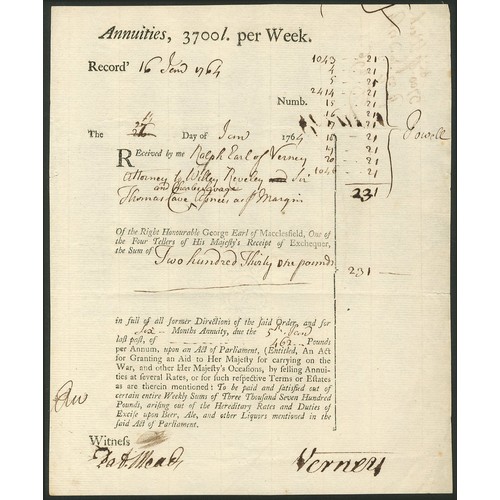 Annuities, 3700l. per Week.
Record' 16 Jan'd 1764
1043 - 21
4 - 21
5 - 21
2414 - 21
Numb. 15 - 21
16 - 21
17 - 21
The 26th Day of Jan'd 1764 18 - 21
19 - 21
20 - 21
1046 - 21
Powell
231
Received by me Ralph Earl of Verney
Attorney to Willey Reveley and Sir
and
Thomas Cave Assnees as p Margin
Of the Right Honourable George Earl of Macclesfield, One of
the Four Tellers of His Majesty's Receipt of Exchequer,
the Sum of Two hundred Thirty One pounds 231 —
in full of all former Directions of the said Order, and for
Six - Months Annuity, due the 5th Jan'd
last past, of 462 - Pounds
per Annum, upon an Act of Parliament, (Entitled, An Act
for Granting an Aid to Her Majesty for carrying on the
War, and other Her Majesty's Occasions, by selling Annui-
ties at several Rates, or for such respective Terms or Estates
as are therein mentioned: To be paid and satisfied out of
certain entire Weekly Sums of Three Thousand Seven Hundred
Pounds, arising out of the Hereditary Rates and Duties of
Excise upon Beer, Ale, and other Liquors mentioned in the
said Act of Parliament.
Witness
Mead
Verney